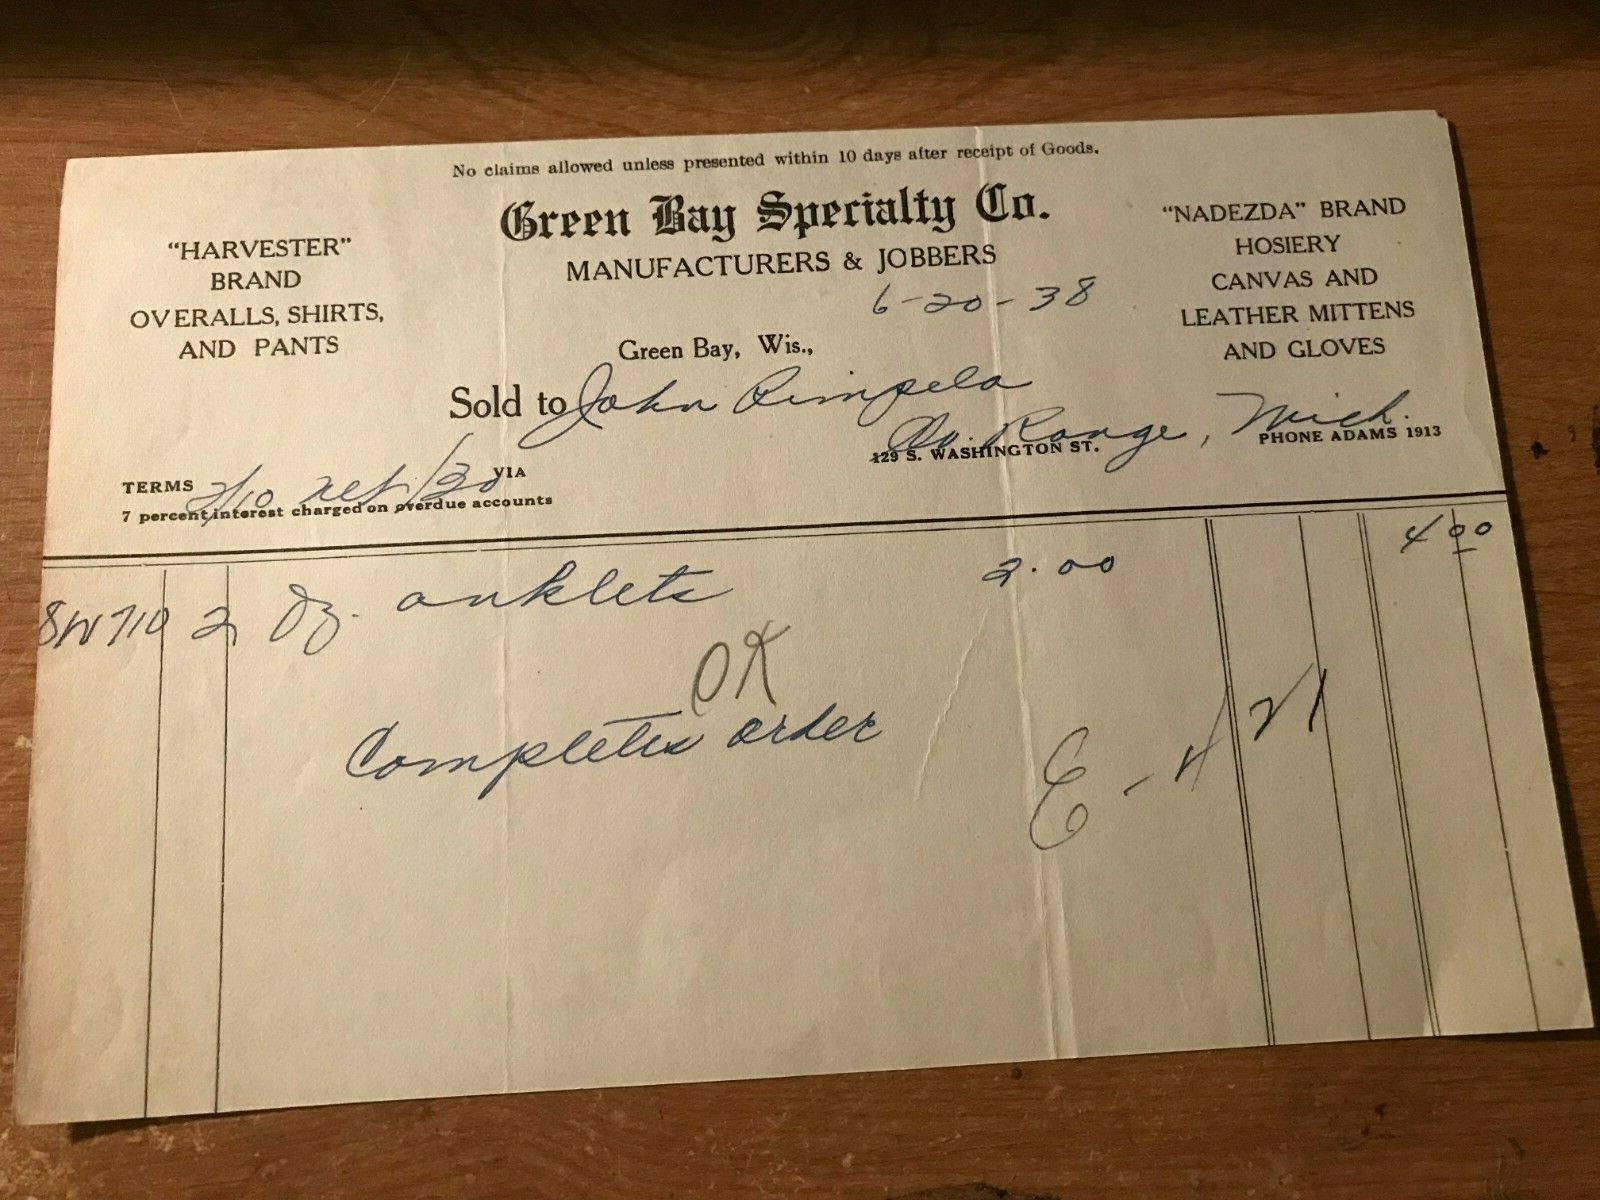 No claims allowed unless presented within 10 days after receipt of Goods.
Green Bay Specialty Co.
MANUFACTURERS & JOBBERS
"HARVESTER"
BRAND
OVERALLS, SHIRTS,
AND PANTS
"NADEZDA" BRAND
HOSIERY
CANVAS AND
LEATHER MITTENS
AND GLOVES
6-20-38
Green Bay, Wis.,
Sold to John Rimpela
So. Range, Mich.
129 S. WASHINGTON ST.
PHONE ADAMS 1913
TERMS 2/10 net /30 VIA
7 percent interest charged on overdue accounts
8W710 2 Dz. anklets 2.00 4 00
OK
Completes order
E-